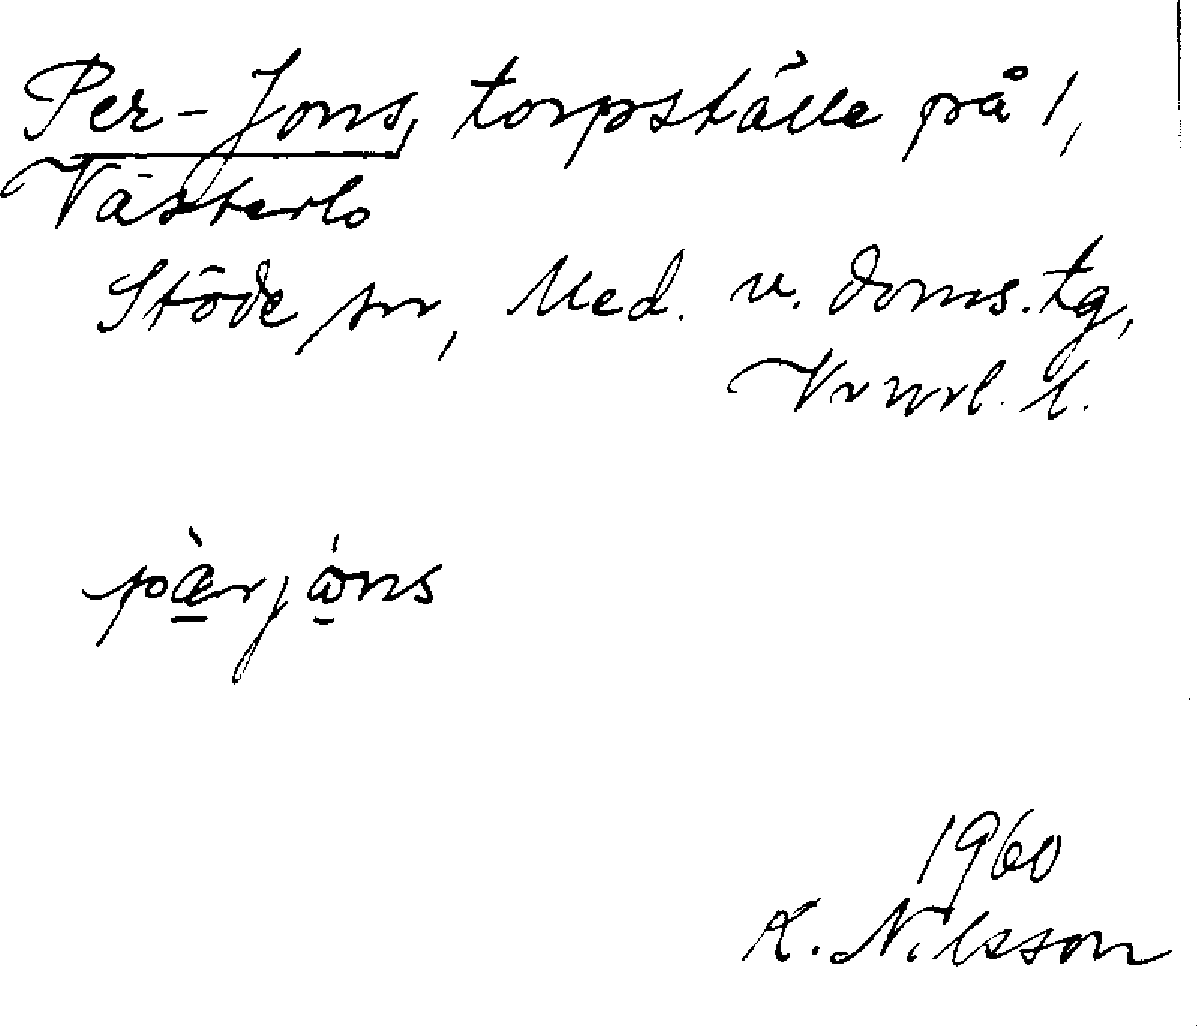 Per-Jons, torpställe på 1,
Västerlo
Stöde sn, Med. v. doms. tg,
Vrnrl. l.
pæ̀rjóns
1960
K. Nilsson